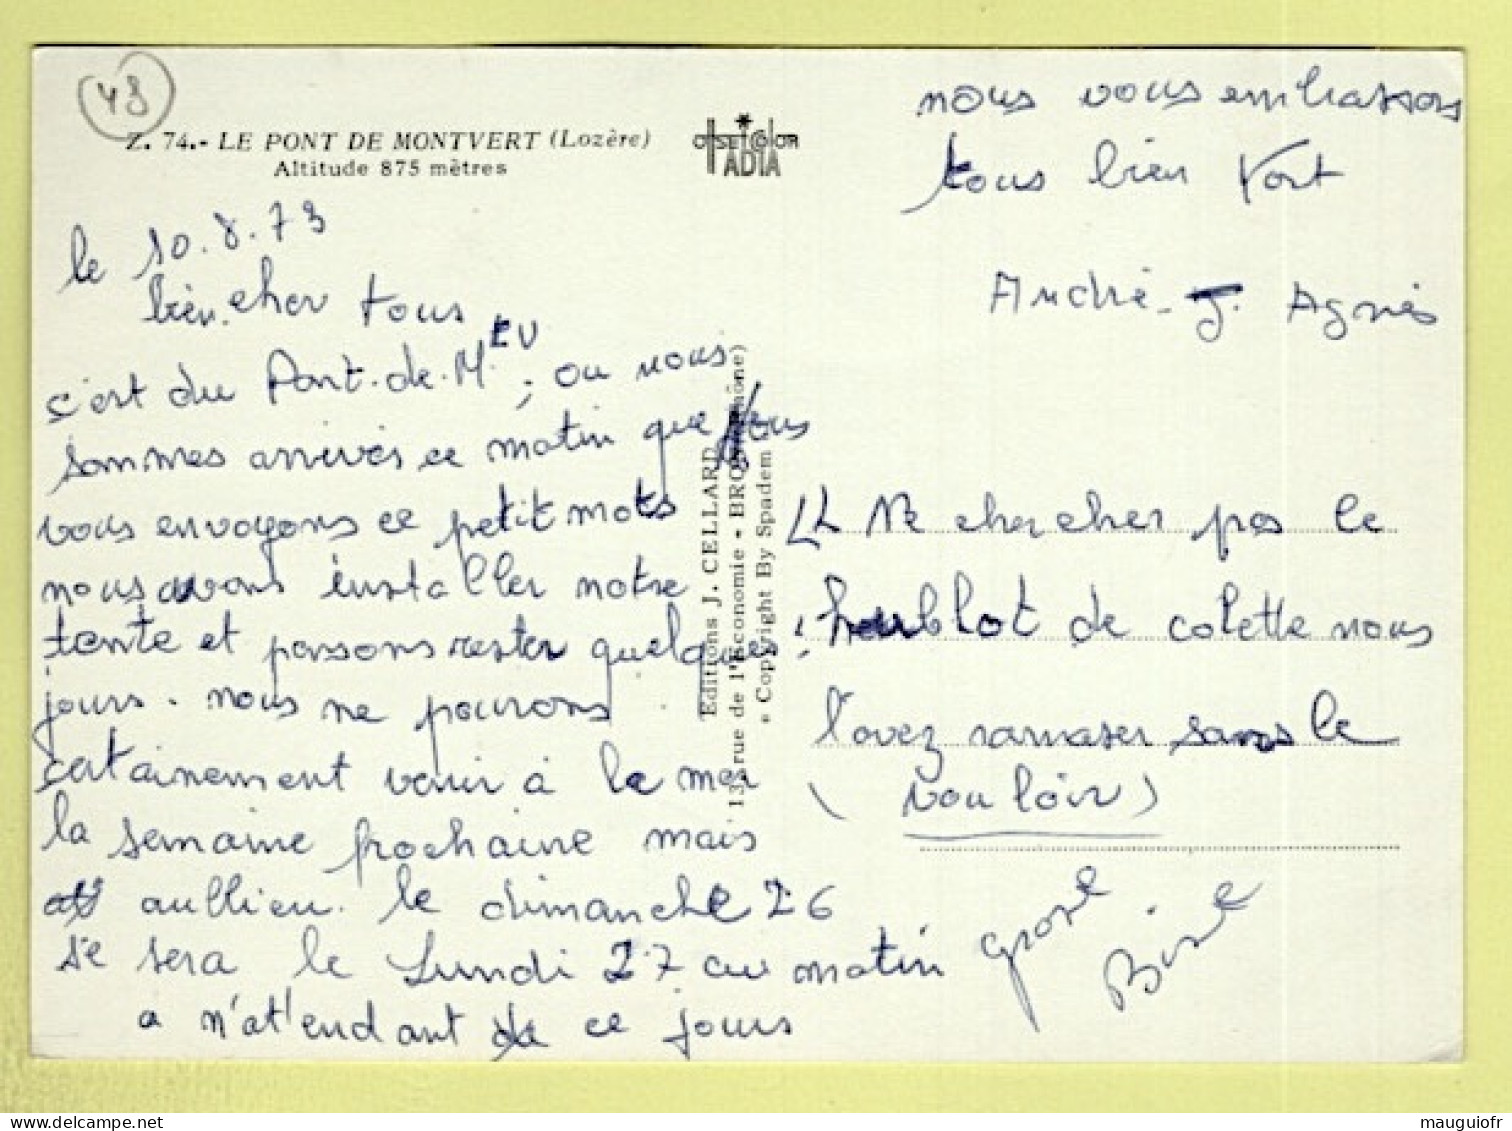 48
Z. 74.- LE PONT DE MONTVERT (Lozère)
Altitude 875 mètres
OFFSET COLOR
IADIA
le 10.8.73
bien cher tous
c'est du Pont.de.M.TV, ou nous
sommes arrivés ce matin que Nous
vous envoyons ce petit mots
nous avons installer notre
tente et pensons rester quelques
jours. nous ne pourons
certainement venir à la mer
la semaine prochaine mais
aullieu. le dimanche 26
se sera le Lundi 27 au matin
a n'at'endant ce jours
Editions J. CELLARD
13, rue de l'Economie - BRON (Rhône)
Copyright By Spadem
nous vous embrassons
tous bien fort
André - J. Agnès
Ne chercher pas le
hublot de colette nous
l'avez ramaser sans le
(vouloir)
grose
Bise
mauguiofr